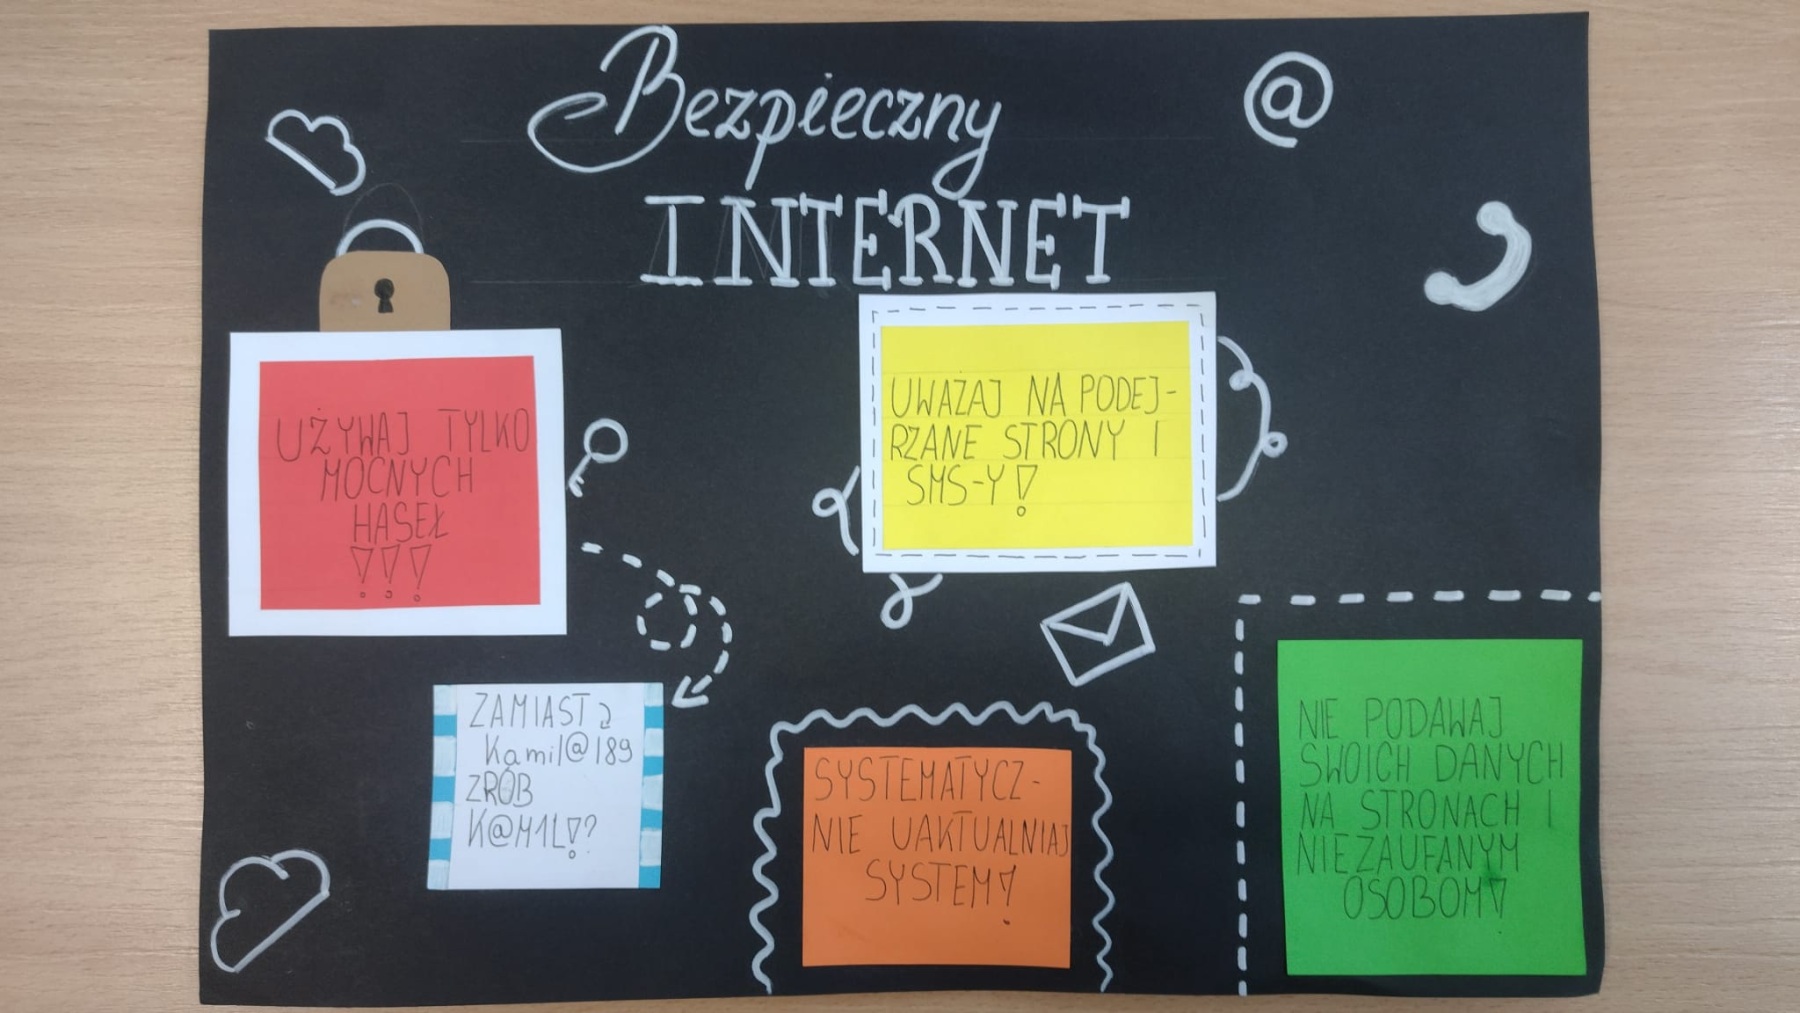 Bezpieczny
INTERNET
@
UŻYWAJ TYLKO
MOCNYCH
HASEŁ
!!!
UWAZAJ NA PODEJ-
RZANE STRONY I
SMS-Y!
ZAMIAST
Kamil@189
ZRÓB
K@M1L!?
SYSTEMATYCZ-
NIE UAKTUALNIAJ
SYSTEM!
NIE PODAWAJ
SWOICH DANYCH
NA STRONACH I
NIEZAUFANYM
OSOBOM!